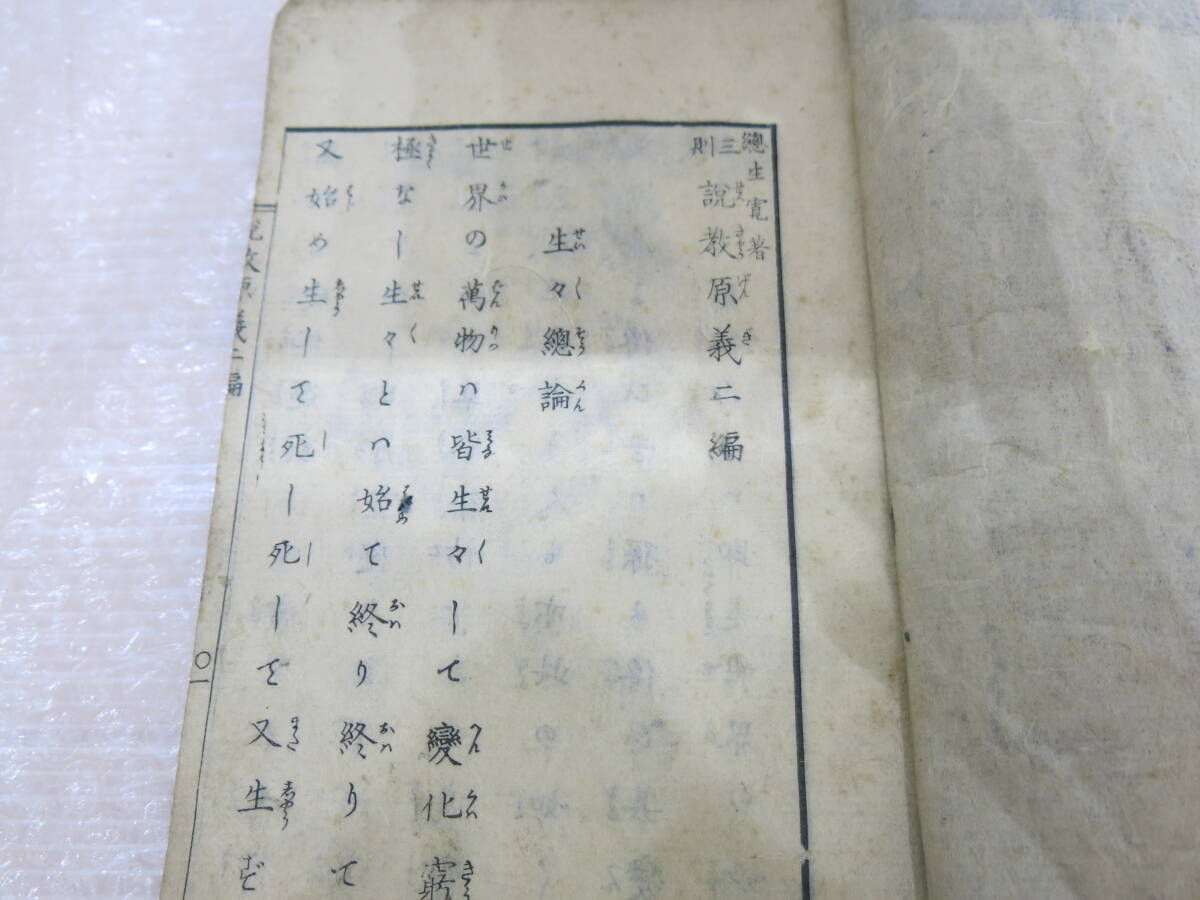 總生寛著
三則說教原義二編
生々總論
世界の萬物ハ皆生々して變化窮
極なし生々とハ始て終り終りて
又始め生して死し死して又生ず
說教原義二編
〇一